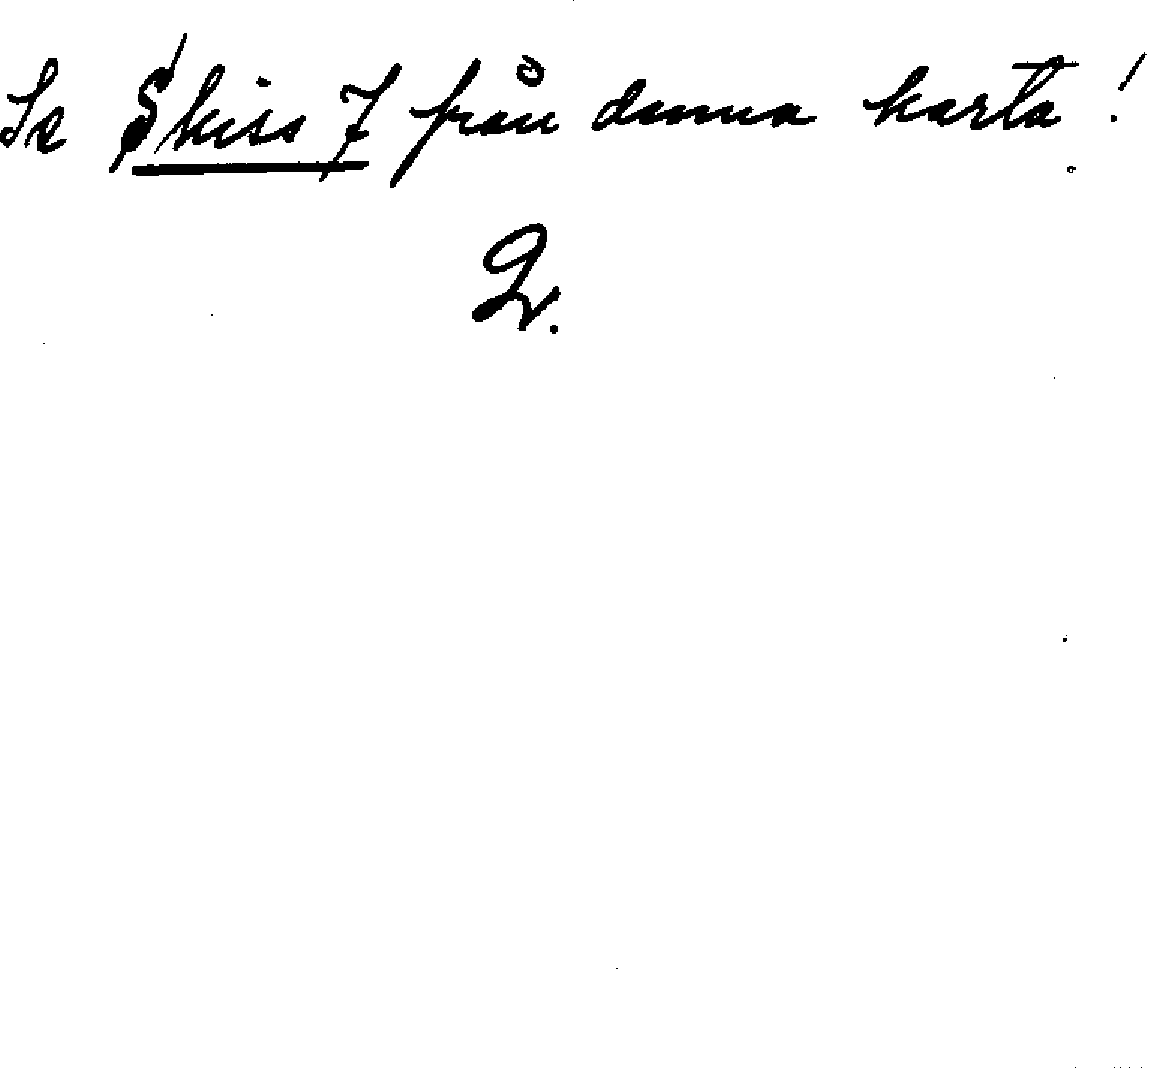 Se Skiss 7 från denna karta!